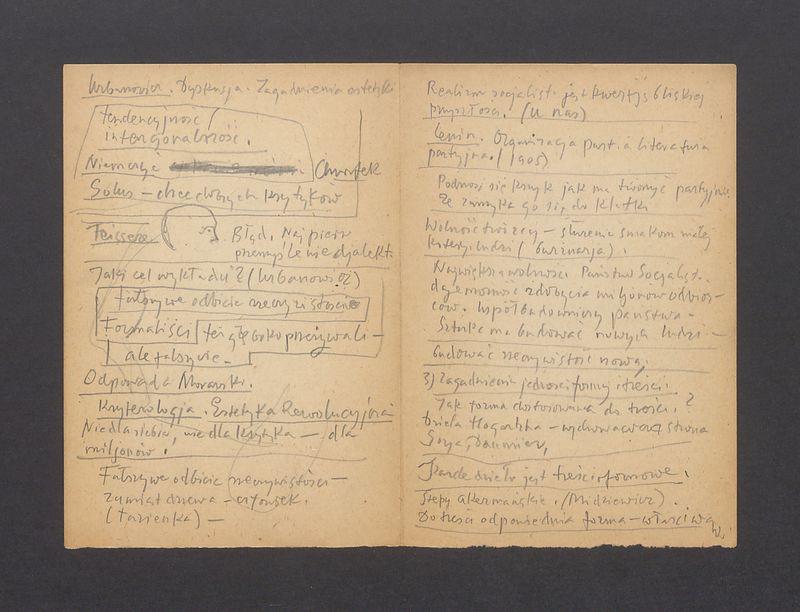 Urbanowicz. Dyskusja. Zagadnienia estetyki
tendencyjność /
intencjonalność.
Chwistek
Sokus – chce dobrych krytyków
Teissere
Błąd. Najpierw
przemyślenie djalekt.
Jaki cel wykładu? (Urbanowicz)
Fałszywe odbicie rzeczywistości
Formaliści też głęboko przeżywali –
ale fałszywie –
Odpowiada Morawski.
Kryterologja. Estetyka Rewolucyjna
Nie dla siebie, nie dla krytyka – dla
miljonów.
Fałszywe odbicie rzeczywistości –
zamiast drzewa – człowiek.
(Łazienka) –
Realizm socjalist. jest kwestją bliskiej
przyszłości. (u nas)
Lenin. Organizacja part. a literatura
partyjna. (1905)
Podnosi się krzyk jak ma tworzyć partyjnie
że zamyka go się do klatki
Wolność twórczy – służenie smakom małej
ludzi (burżuazja).
Największą wolność Państwo Socjalist.
daje możność zdobycia miljonów odbior-
ców. współbudowniczy państwa –
Sztuka ma budować nowych ludzi –
budować rzeczywistość nową.
3) Zagadnienie jedności formy i treści.
Jak forma dostosowana do treści.?
Dzieła Hogartha – wychowawcza strona
Goya, Daumier,
Każde dzieło jest treścioformowe.
Stepy akermańskie. (Mickiewicz).
Do treści odpowiednia forma – właściwa